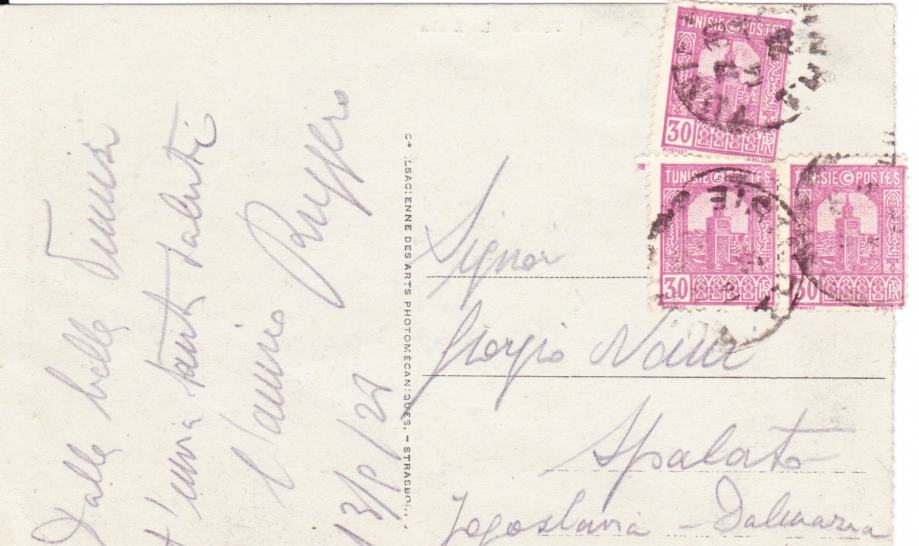 Dalle bella Tunisi
t'invia tanti saluti
l'amico Ruggero
13/8/27
Cie ALSACIENNE DES ARTS PHOTOMÉCANIQUES. - STRASBOURG
TUNISIE POSTES
30
TUNISIE POSTES
30
TUNISIE POSTES
30
Signor
Giorgio
Spalato
Jogoslavia - Dalmazia